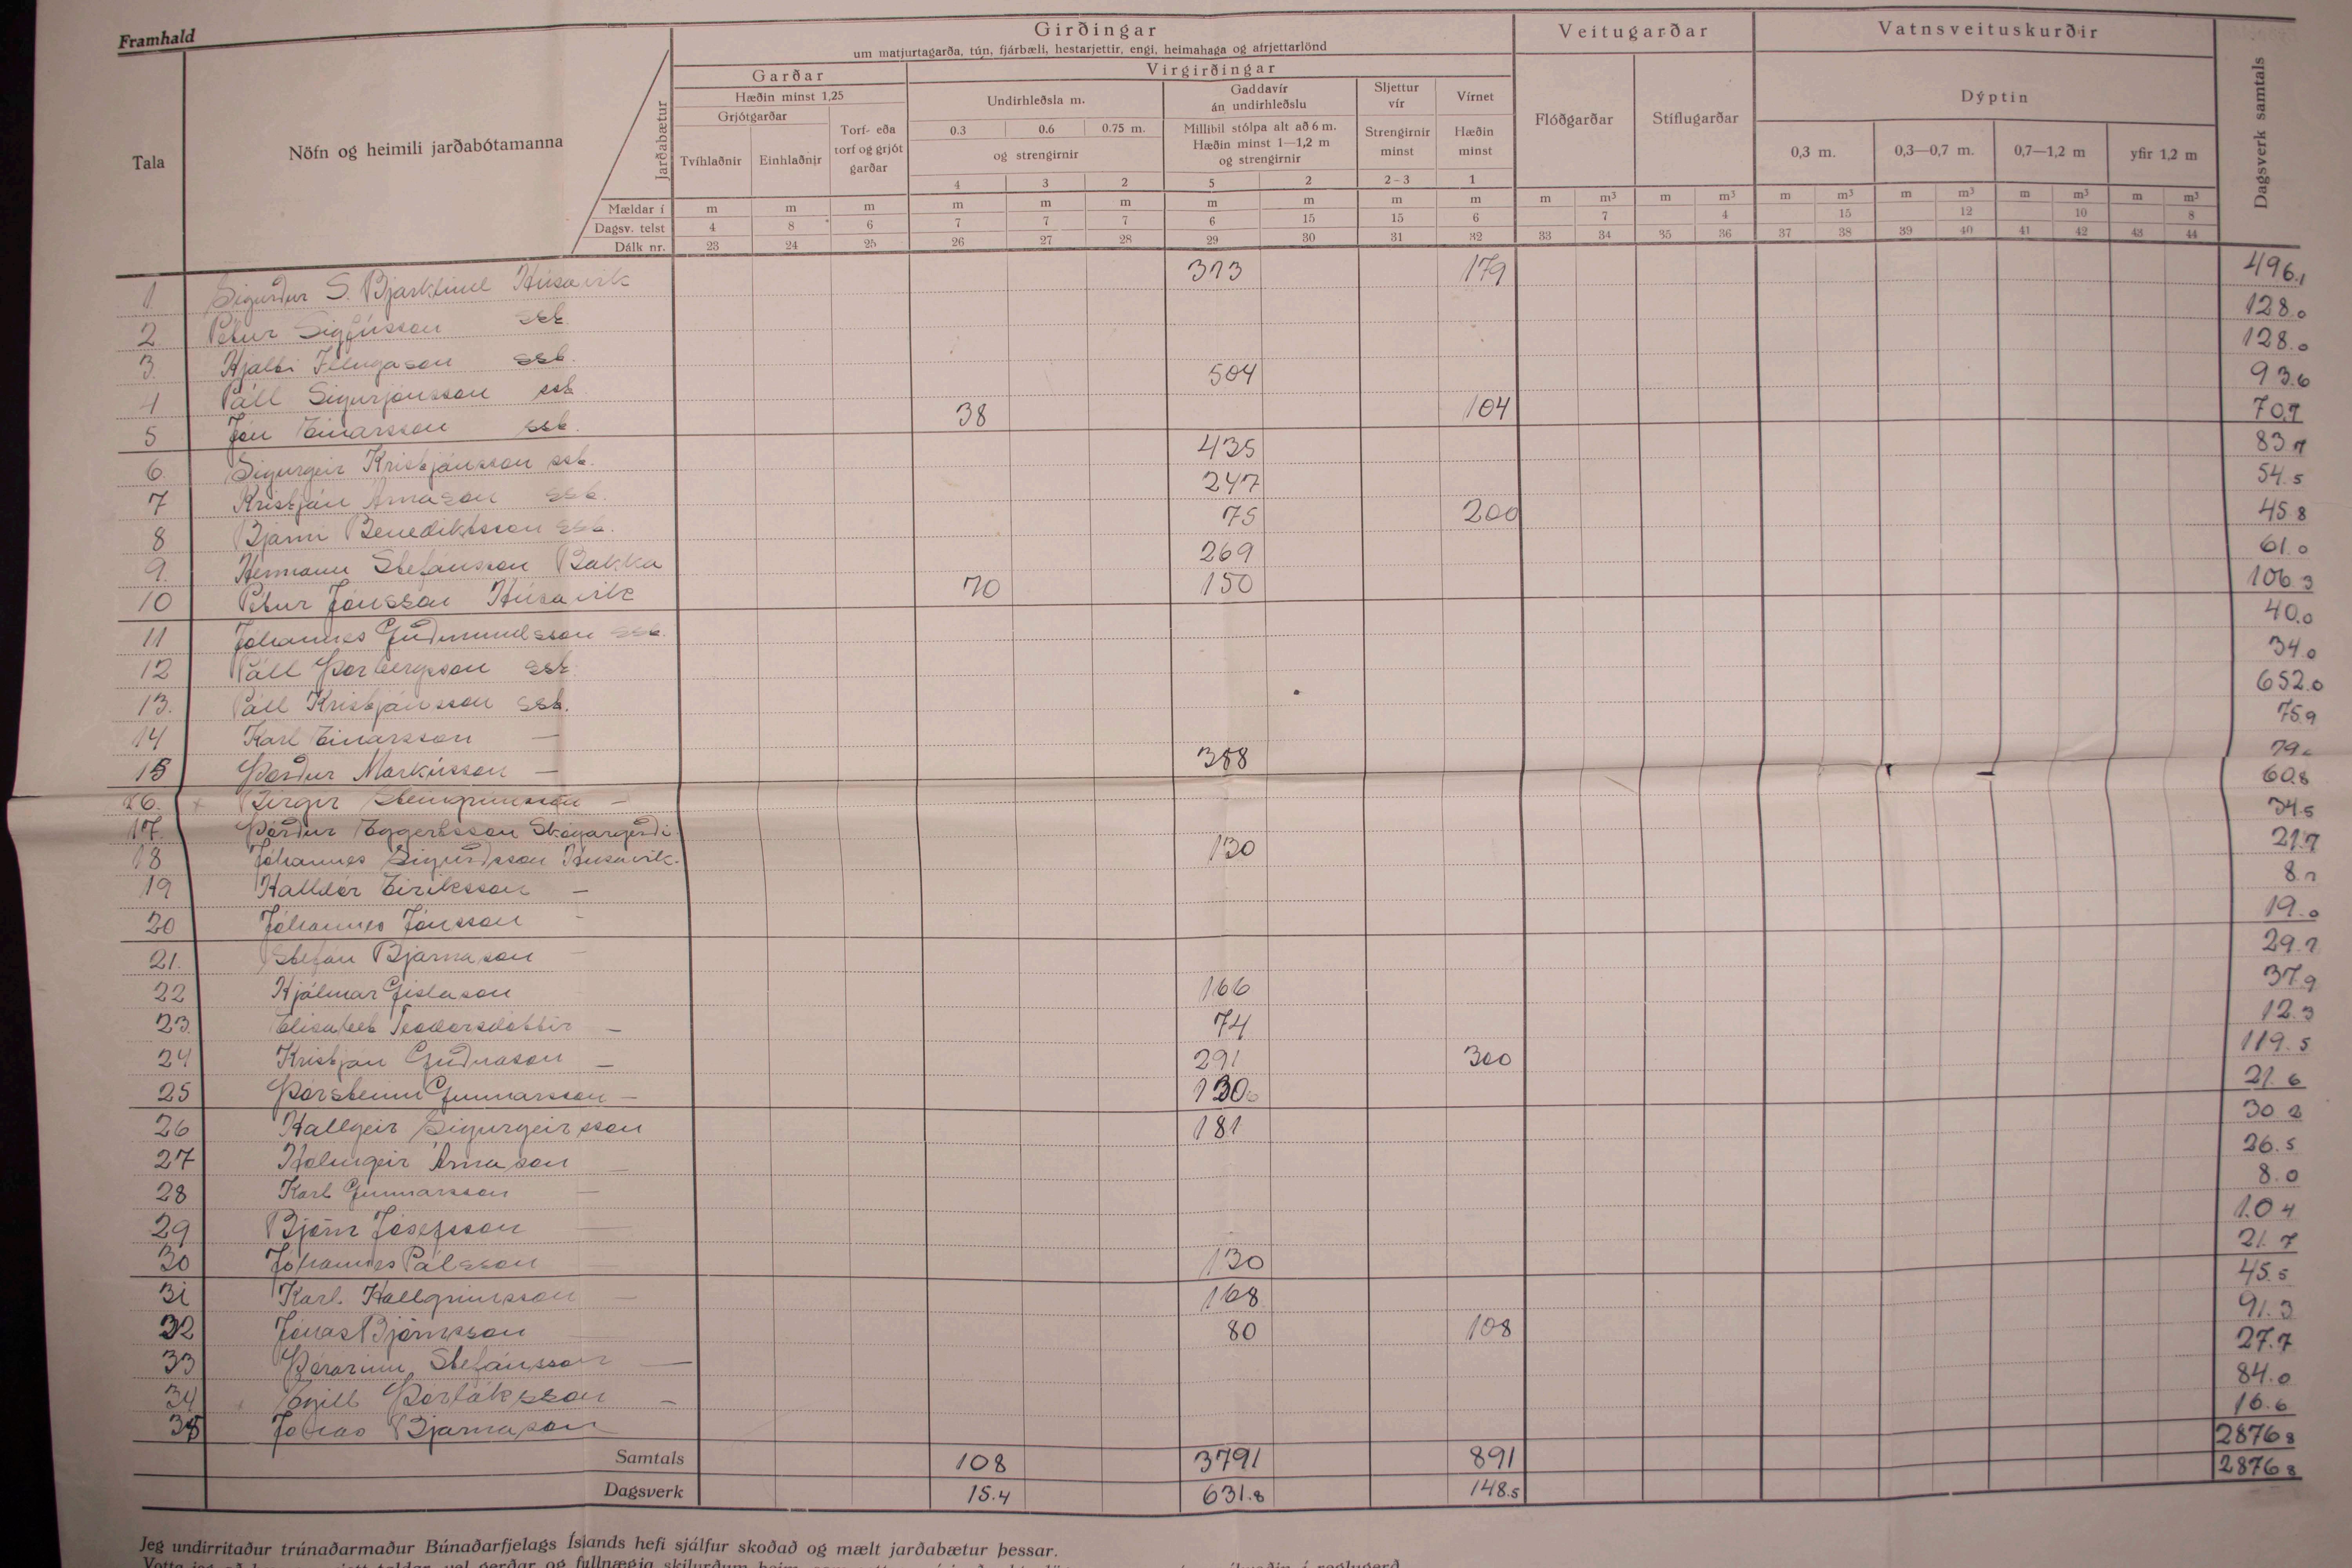 Framhald
Girðingar
um matjurtagarða, tún, fjárbæli, hestarjettir, engi, heimahaga og afrjettarlönd
Veitugarðar
Vatnsveituskurðir
Garðar
Virgirðingar
Tala
Nöfn og heimili jarðabótamanna
Jarðabætur
Hæðin minst 1,25
Grjótgarðar
Tvíhlaðnir
Einhlaðnir
Torf- eða torf og grjót garðar
Undirhleðsla m.
0.3 0.6 0.75 m.
og strengirnir
4 3 2
Gaddavír án undirhleðslu
Millibil stólpa alt að 6 m.
Hæðin minst 1—1,2 m
og strengirnir
5 2
Sljettur vír
Strengirnir minst
2-3
Vírnet
Hæðin minst
1
Flóðgarðar
Stíflugarðar
Dýptin
0,3 m. 0,3—0,7 m. 0,7—1,2 m yfir 1,2 m
Dagsverk samtals
Mældar í m m m m m m m m m m m m³ m m³ m m³ m m³ m m³ m m³
Dagsv. telst 4 8 6 7 7 7 6 15 15 6 7 4 15 12 10 8
Dálk nr. 23 24 25 26 27 28 29 30 31 32 33 34 35 36 37 38 39 40 41 42 43 44
1 Sigurður S. Bjarklind Húsavík 313 179 496.1
2 Pétur Sigfússon ssk. 128.0
3. Hjalti Illugason sst. 128.0
4 Páll Sigurjónsson sst 504 93.6
5 Jón Einarsson sst. 38 104 70.7
6. Sigurgeir Kristjánsson sst. 435 83.7
7 Kristján Árnason sst. 247 54.5
8 Bjarni Benediktsson sst. 75 200 45.8
9. Hermann Stefánsson Bakka 269 61.0
10 Pétur Jónsson Húsavík 70 150 106.3
11 Jóhannes Guðmundsson sst. 40.0
12 Páll Þorbergsson sst. 34.0
13. Páll Kristjánsson sst. 652.0
14 Karl Einarsson — 75.9
15 Þórður Markússon — 388 79.
16. x Birgir Steingrímsson — 60.8
17. Þórður Eggertsson Skógargerði 34.5
18 Jóhannes Sigurðsson Húsavík. 130 21.7
19 Halldór Eiríksson — 8.
20 Jóhannes Jónsson - 19.0
21. Stefán Bjarnason - 29.2
22 Hjálmar Gíslason 166 37.9
23. Elísabet Teodórsdóttir — 74 12.3
24 Kristján Guðnason — 291 300 119.5
25 Þorsteinn Gunnarsson — 130 21.6
26 Hallgeir Sigurgeirsson 181 30.2
27 Holmgeir Árnason — 26.5
28 Karl Gunnarsson — 8.0
29 Björn Jósefsson — 1.04
30 Jóhannes Pálsson 130 21.7
31 Karl Hallgrímsson — 168 45.5
32 Jónas Björnsson — 80 108 91.3
33 Þórarinn Stefánsson — 27.7
34 Egill Þorláksson — 84.0
35 Bjarnason 16.6
Samtals 108 3791 891 2876 8
Dagsverk 15.4 631.8 148.5 2876 8
Jeg undirritaður trúnaðarmaður Búnaðarfjelags Íslands hefi sjálfur skoðað og mælt jarðabætur þessar.